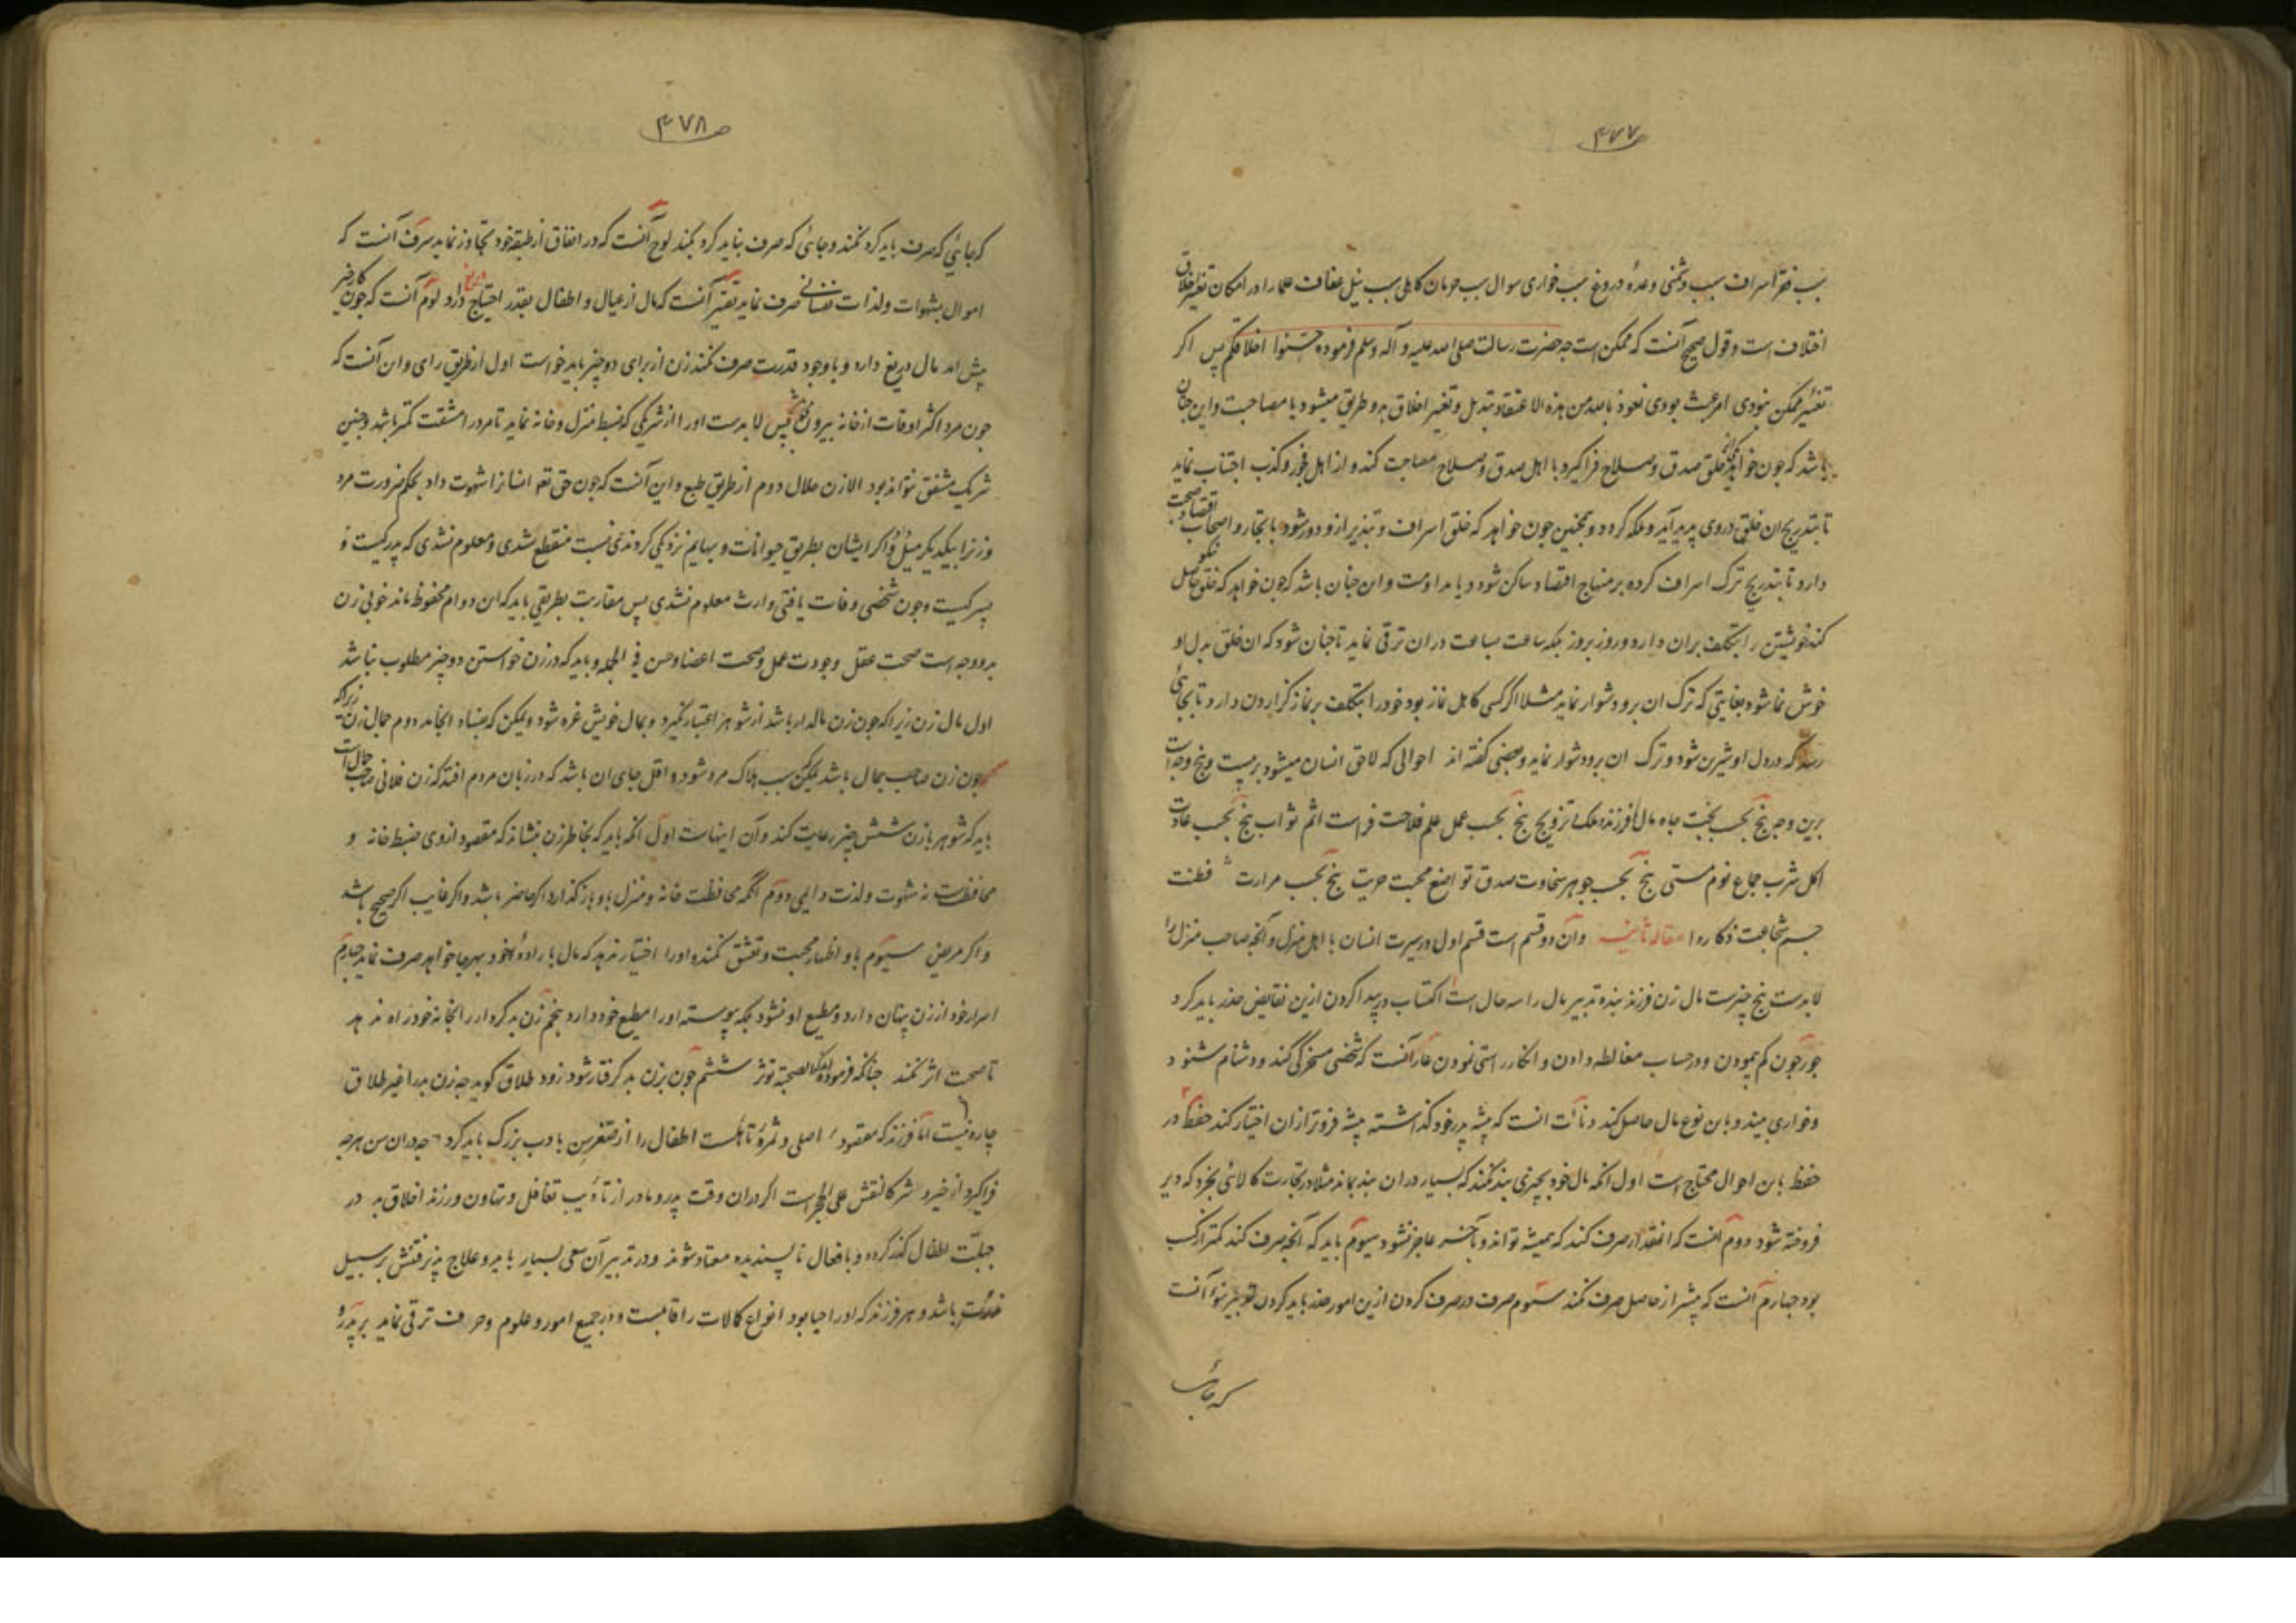 ۴۷۷
سبب فقر اسراف سبب دشمنی وعدهٔ دروغ سبب خواری سوال سبب حرمان کاهلی سبب نیل عفاف علما را در امکان تغیر اخلاق
اختلاف است و قول صحیح آنست که ممکن است چه حضرت رسالت صلی الله علیه و آله وسلم فرموده حسنوا اخلاقکم پس اگر
تغییر ممکن نبودی امر عبث بودی نعوذ بالله من هذه الاعتقاد و تبدیل و تغییر اخلاق بدو طریق میشود یا مصاحبت و این چنان
باشد که چون خواهد که خلق صدق و صلاح فراگیرد با اهل صدق و صلاح مصاحبت کند و از اهل فجور و کذب اجتناب نماید
تا بتدریج ان خلق در وی پدید آید و ملکه گردد و همچنین چون خواهد که خلق اسراف و تبذیر از و دور شود با تجار و اصحاب اقتصاد صحبت
دارد تا بتدریج ترک اسراف کرده بر منهاج اقتصاد ساکن شود و یا مداومت و این چنان باشد که چون خواهد که خلق نیکو حاصل
کند خویشتن را بتکلف بران دارد و روز بروز بلکه ساعت بساعت دران ترقی نماید تا چنان شود که ان خلق بدل او
خوش نما شود بغایتی که ترک ان برو دشوار نماید مثلا اگر کسی کاهل نماز بود خود را بتکلف بر نماز گزاردن دارد تا بجائی
رسد که در دل او شیرین شود و ترک ان برو دشوار نماید و بعضی گفته اند احوالی که لاحق انسان میشود بر بیست و پنج وجه است
برین وجه پنج بحسب بخت جاه مال فرزند ملک تزویج پنج بحسب عمل علم فلاحت فراست اثم ثواب پنج بحسب عادت
اکل شرب جماع نوم مستی پنج بحسب جوهر سخاوت صدق تواضع محبت حریت پنج بحسب مرارت فطنت
جسم شجاعت ذکا روا مقاله ثانیه وآن دو قسم است قسم اول در سیرت انسان با اهل منزل و آنچه صاحب منزل را
لابدست پنج چیزست مال زن فرزند بنده تدبیر مال را سه حال است اکتساب و پیدا کردن ازین نقایض حذر باید کرد
جور چون کم پیمودن و در حساب مغالطه دادن و انکار راستی نمودن عار آنست که شخصی مسخرگی کند و دشنام شنود
و خواری بیند و باین نوع مال حاصل کند دنائت انست که پیشه پدر خود گذاشته پیشه فروتر ازان اختیار کند حفظ در
حفظ باین احوال محتاج است اول انکه مال خود بچیزی بند نکند که بسیار دران بند بماند مثلا در تجارت کالائی بخرد که دیر
فروخته شود دوم آنست که انقدر صرف کند که همیشه تواند و بآخر عاجز نشود سیوم باید که آنچه صرف کند کمتر از کسب
بود چهارم آنست که بیشتر از حاصل صرف نکند سیوم صرف در صرف کردن ازین امور حذر باید کردن تبذیر آنست
که جائی
۴۷۸
که جائی که صرف باید کرد نکند و جائی که صرف نباید کرد بکند لوح آنست که در انفاق از طبقه خود تجاوز نماید سرف آنست که
اموال بشهوات و لذات نفسانی صرف نماید تقتیر آنست که مال از عیال و اطفال بقدر احتیاج دریغ دارد لوم آنست که چون کار خیر
پیش اید مال دریغ دارد و با وجود قدرت صرف نکند زن از برای دو چیز باید خواست اول از طریق رای و این آنست که
چون مرد اکثر اوقات از خانه بیرون باشد پس لابدست او را از شریکی که ضبط منزل و خانه نماید تا مرد را مشقت کمتر باشد و چنین
شریک مشفق نتواند بود الا زن حلال دوم از طریق طبع و این آنست که چون حق تعه انسانرا شهوت داد بحکم ضرورت مرد
و زنرا بیکدیگر میل و اگر ایشان بطریق حیوانات و بهایم نزدیکی کردندی نسبت منقطع شدی و معلوم نشدی که پدر کیست و
پسر کیست و چون شخصی وفات یافتی وارث معلوم نشدی پس مقاربت بطریقی باید که این دوام محفوظ ماند خوبی زن
بدو وجه است صحت عقل وجودت عمل و صحت اعضا و حسن فی الجمله و باید که در زن خواستن دو چیز مطلوب نباشد
اول مال زن زیراکه چون زن مالدار باشد از شوهر اعتبار نگیرد و بمال خویش غره شود و یمکن که بفساد انجامد دوم جمال زن زیراکه
چون زن صاحب جمال باشد یمکن سبب هلاک مرد شود و اقل جای ان باشد که در زبان مردم افتد که زن فلانی صاحب جمال است
باید که شوهر با زن شش چیز رعایت کند وآن اینهاست اول انکه باید که بخاطر زن نشاند که مقصود از وی ضبط خانه و
محافظت نه شهوت و لذت دایمی دوم انکه محافظت خانه و منزل باو باز گذارد اگر حاضر باشد و اگر غایب اگر صحیح باشد
و اگر مریض سیوم باو اظهار محبت و تعشق نکند و او را اختیار ندهد که مال باراده خود بهرجا خواهد صرف نماید چهارم
اسرار خود از زن پنهان دارد و مطیع او نشود بلکه پیوسته او را مطیع خود دارد پنجم زن بد کردار را بخانه خود راه ندهد
تا صحبت اثر نکند چنانکه فرموده اند که الصحبة توثر ششم چون بزن بد گرفتار شود زود طلاق گوید چه زن بد را غیر طلاق
چاره نیست اما فرزند که مقصود اصلی و ثمرهٔ تاهلست اطفال را از صغر سن بادب بزرگ باید کرد چه دران سن هرچه
فراگیرد از خیر و شر کالنقش علی الحجر است اگر دران وقت پدر و مادر از تأدیب تغافل و تهاون ورزند اخلاق بد در
جبلت اطفال گذر کرده و بافعال ناپسندیده معتاد شوند و در تدبیر آن سعی بسیار باید و علاج پذیرفتنش بر سبیل
ندرت باشد و هر فرزند که او را حیا بود انواع کالات را قابلست و در جمیع امور و علوم و حرفت ترقی نماید بر پدر و